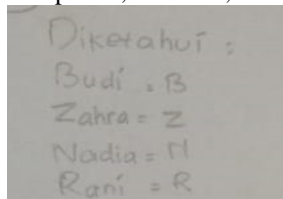 Diketahui :
Budi = B
Zahra = Z
Nadia = N
Rani = R